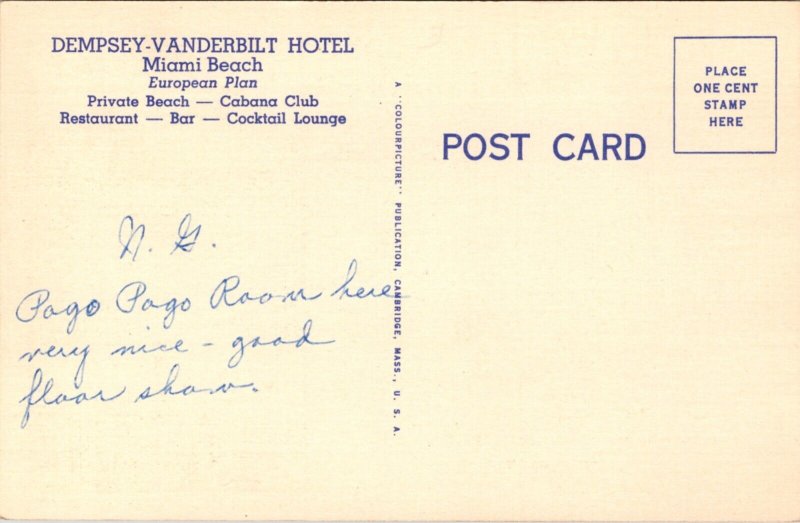 DEMPSEY-VANDERBILT HOTEL
Miami Beach
European Plan
Private Beach — Cabana Club
Restaurant — Bar — Cocktail Lounge
N. G.
Pago Pago Room here
very nice - good
floor show.
A "COLOURPICTURE" PUBLICATION, CAMBRIDGE, MASS., U. S. A.
POST CARD
PLACE
ONE CENT
STAMP
HERE